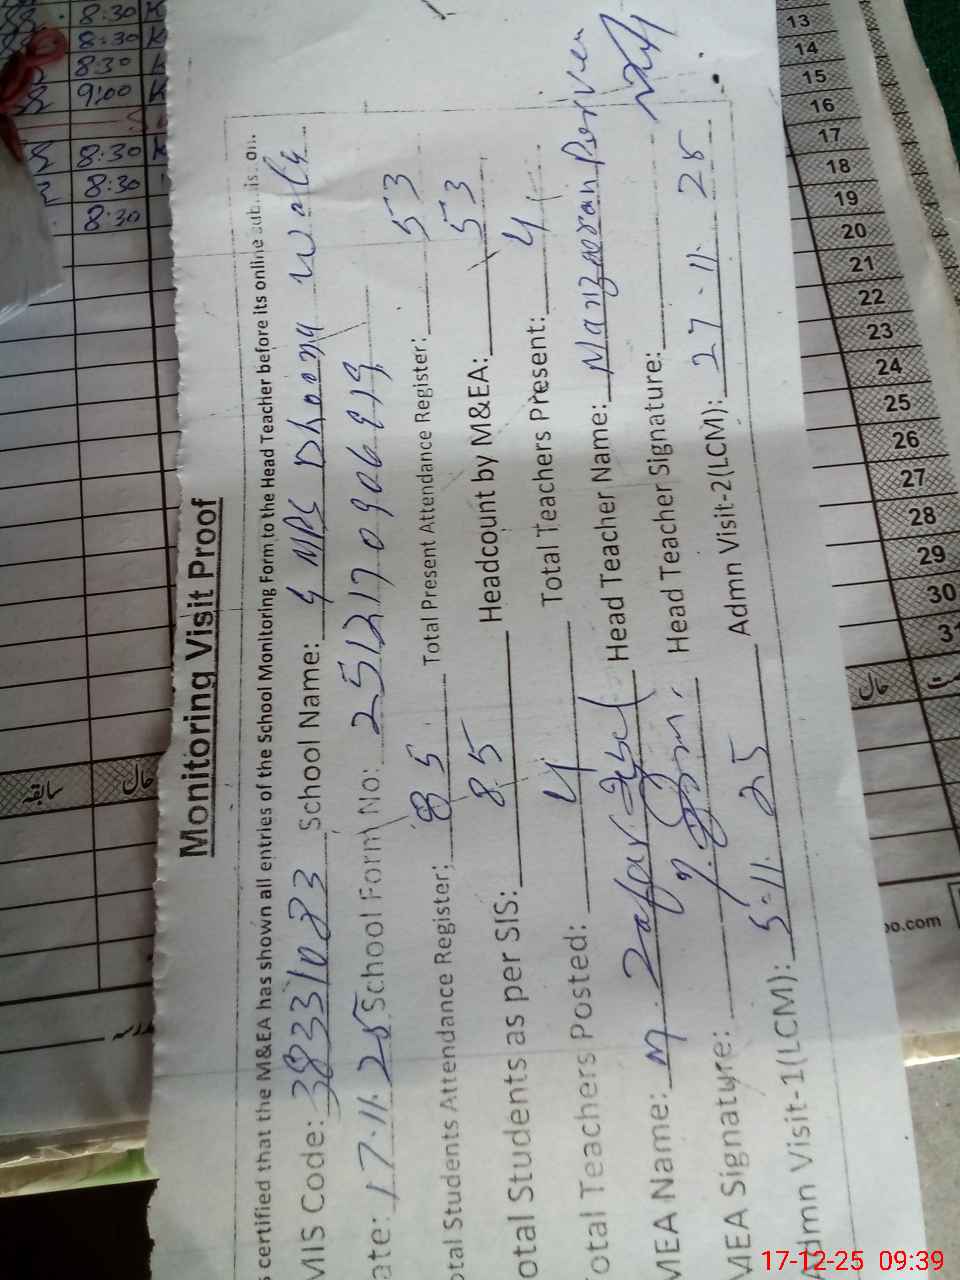 Monitoring Visit Proof
certified that the M&EA has shown all entries of the School Monitoring Form to the Head Teacher before its online
MIS Code: 38331023 School Name: G MPS Dhoona Wala
ate: 17.11.25 School Form No:
otal Students Attendance Register: 85 Total Present Attendance Register: 53
otal Students as per SIS: 85 Headcount by M&EA: 53
otal Teachers Posted: 4 Total Teachers Present: 4
MEA Name: M. Zafar Iqbal Head Teacher Name: Manzooran Perveen
MEA Signature: Head Teacher Signature:
Admn Visit-1(LCM): 5-11. 25 Admn Visit-2(LCM): 27-11. 25
8:30
8:30
8:30
9:00
8:30
8:30
8:30
سابقہ
حال
13
14
15
16
17
18
19
20
21
22
23
24
25
26
27
28
29
30
31
حال
oo.com
17-12-25 09:39